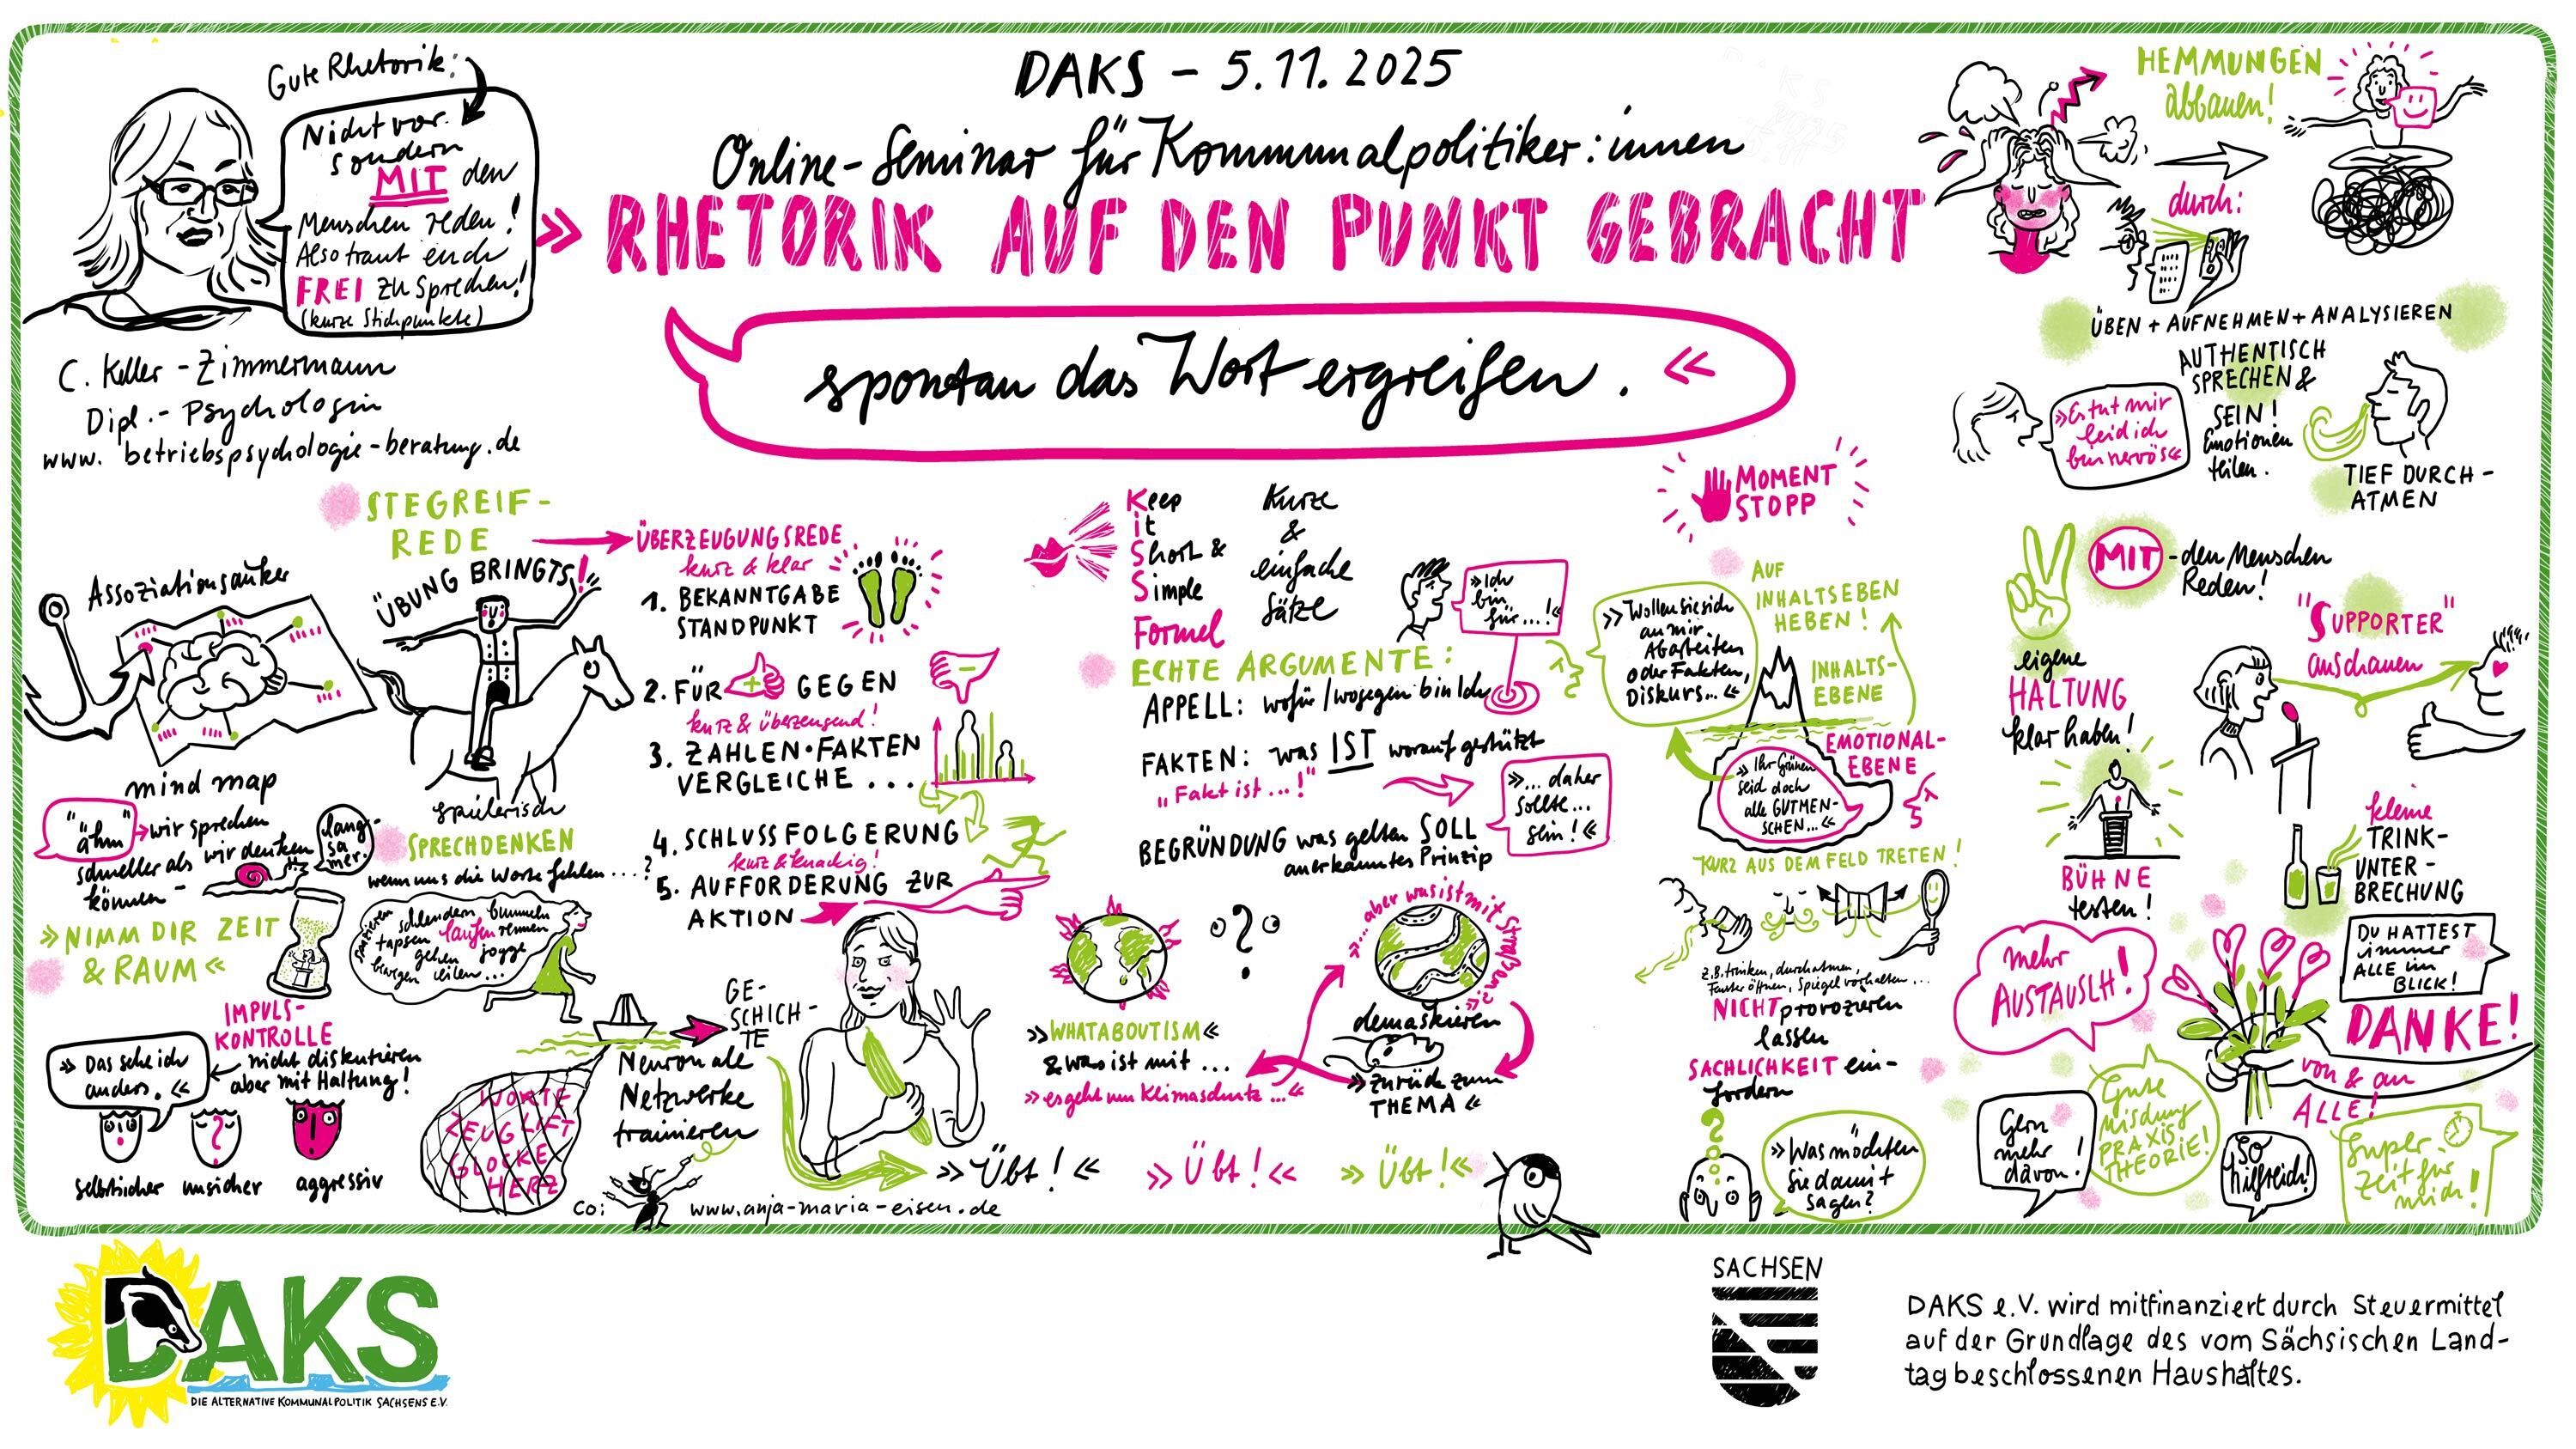 DAKS – 5.11.2025
Online-Seminar für Kommunalpolitiker:innen
» RHETORIK AUF DEN PUNKT GEBRACHT
spontan das Wort ergreifen. «
Gute Rhetorik:
Nicht vor
sondern
MIT den
Menschen reden!
Also traut euch
FREI zu sprechen!
(kurze Stichpunkte)
C. Keller-Zimmermann
Dipl.-Psychologin
www.betriebspsychologie-beratung.de
STEGREIF-
REDE
ÜBUNG BRINGTS!
spielerisch
Assoziationsanker
mind map
"ähm" wir sprechen
schneller als wir denken
können –
lang-
sa
mer.
» NIMM DIR ZEIT
& RAUM «
SPRECHDENKEN
wenn uns die Worte fehlen ...?
spazieren schlendern bummeln
tapsen laufen rennen
gehen jogge
bewegen eilen...
IMPULS-
KONTROLLE
nicht diskutieren
aber mit Haltung!
» Das sehe ich
anders. «
selbstsicher unsicher aggressiv
WORTE
ZEUG LIFT
GLOCKE
HERZ
Neuronale
Netzwerke
trainieren
GE-
SCHICH-
TE
co: www.anja-maria-eisen.de
ÜBERZEUGUNGSREDE
kurz & klar
1. BEKANNTGABE
STANDPUNKT
2. FÜR + GEGEN –
kurz & überzeugend!
3. ZAHLEN•FAKTEN
VERGLEICHE ...
4. SCHLUSSFOLGERUNG
kurz & knackig!
5. AUFFORDERUNG ZUR
AKTION
Keep
it
Short &
Simple
Formel
Kurze
&
einfache
Sätze
ECHTE ARGUMENTE:
APPELL: wofür/wogegen bin ich
»Ich
bin
für ...!«
FAKTEN: was IST worauf gestützt
"Fakt ist ...!"
BEGRÜNDUNG was gelten SOLL
anerkanntes Prinzip
»... daher
sollte...
sein!«
»WHATABOUTISM«
& was ist mit ...
»es geht um Klimaschutz ...«
?
»...aber was ist mit Straßen...?«
demaskieren
»zurück zum
THEMA«
» Übt! «
» Übt! «
» Übt! «
MOMENT
STOPP
AUF
INHALTSEBEN
HEBEN!
»Wollen sie sich
an mir
Abarbeiten
oder Fakten,
Diskurs...«
INHALTS-
EBENE
EMOTIONAL-
EBENE
»Ihr Grünen
seid doch
alle GUTMEN-
SCHEN...«
KURZ AUS DEM FELD TRETEN!
z.B. trinken, durchatmen,
Fenster öffnen, Spiegel vorhalten ...
NICHT provozieren
lassen
SACHLICHKEIT ein-
fordern
»Was möchten
Sie damit
sagen?
HEMMUNGEN
abbauen!
durch:
ÜBEN + AUFNEHMEN + ANALYSIEREN
AUTHENTISCH
SPRECHEN &
SEIN!
Emotionen
teilen.
»Es tut mir
leid ich
bin nervös«
TIEF DURCH-
ATMEN
MIT - den Menschen
Reden!
eigene
HALTUNG
klar haben!
"SUPPORTER"
anschauen
BÜHNE
testen!
kleine
TRINK-
UNTER-
BRECHUNG
mehr
AUSTAUSCH!
DU HATTEST
immer
ALLE im
BLICK!
DANKE!
von & an
ALLE!
Gern
mehr
davon!
Gute
Mischung
PRAXIS
THEORIE!
So
hilfreich!
Super
Zeit für
mich!
DAKS
DIE ALTERNATIVE KOMMUNALPOLITIK SACHSENS E.V.
SACHSEN
DAKS e.V. wird mitfinanziert durch Steuermittel
auf der Grundlage des vom Sächsischen Land-
tag beschlossenen Haushaltes.